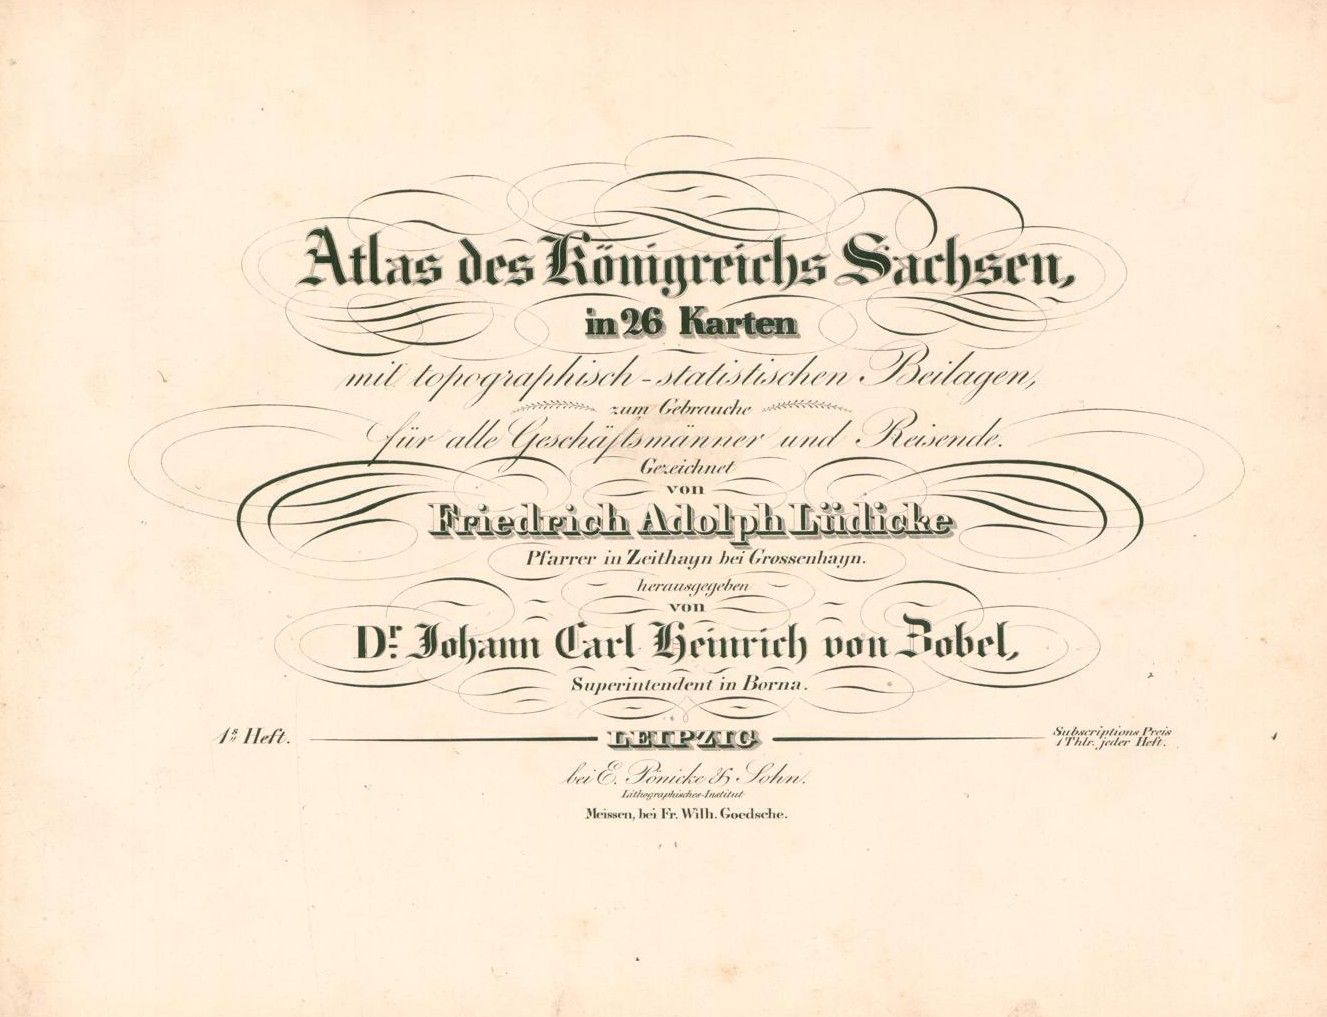 Atlas des Königreichs Sachsen,
in 26 Karten
mit topographisch-statistischen Beilagen,
zum Gebrauche
für alle Geschäftsmänner und Reisende.
Gezeichnet
von
Friedrich Adolph Lüdicke
Pfarrer in Zeithayn bei Grossenhayn.
herausgegeben
von
Dr. Johann Carl Heinrich von Zobel,
Superintendent in Borna.
1s Heft.
LEIPZIG
Subscriptions Preis
1 Thlr. jeder Heft.
bei E. Pönicke & Sohn.
Lithographisches-Institut
Meissen, bei Fr. Wilh. Goedsche.